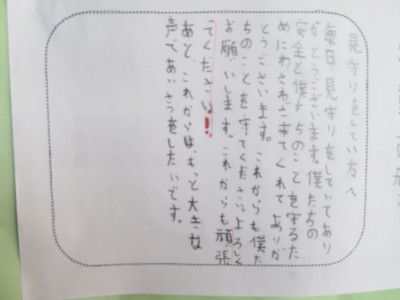 見守りをしてい方へ
毎日、見守りをしていてあり
がとうございます。僕たちの
安全と僕たちのことを守るた
めにわざわざ来てくれてありが
とうございます。これからも僕た
ちのことを守てください。よろしく
お願いします。これからも頑張
てください!
あと、これからは、もっと大きな
声で、あいさつをしたいです。